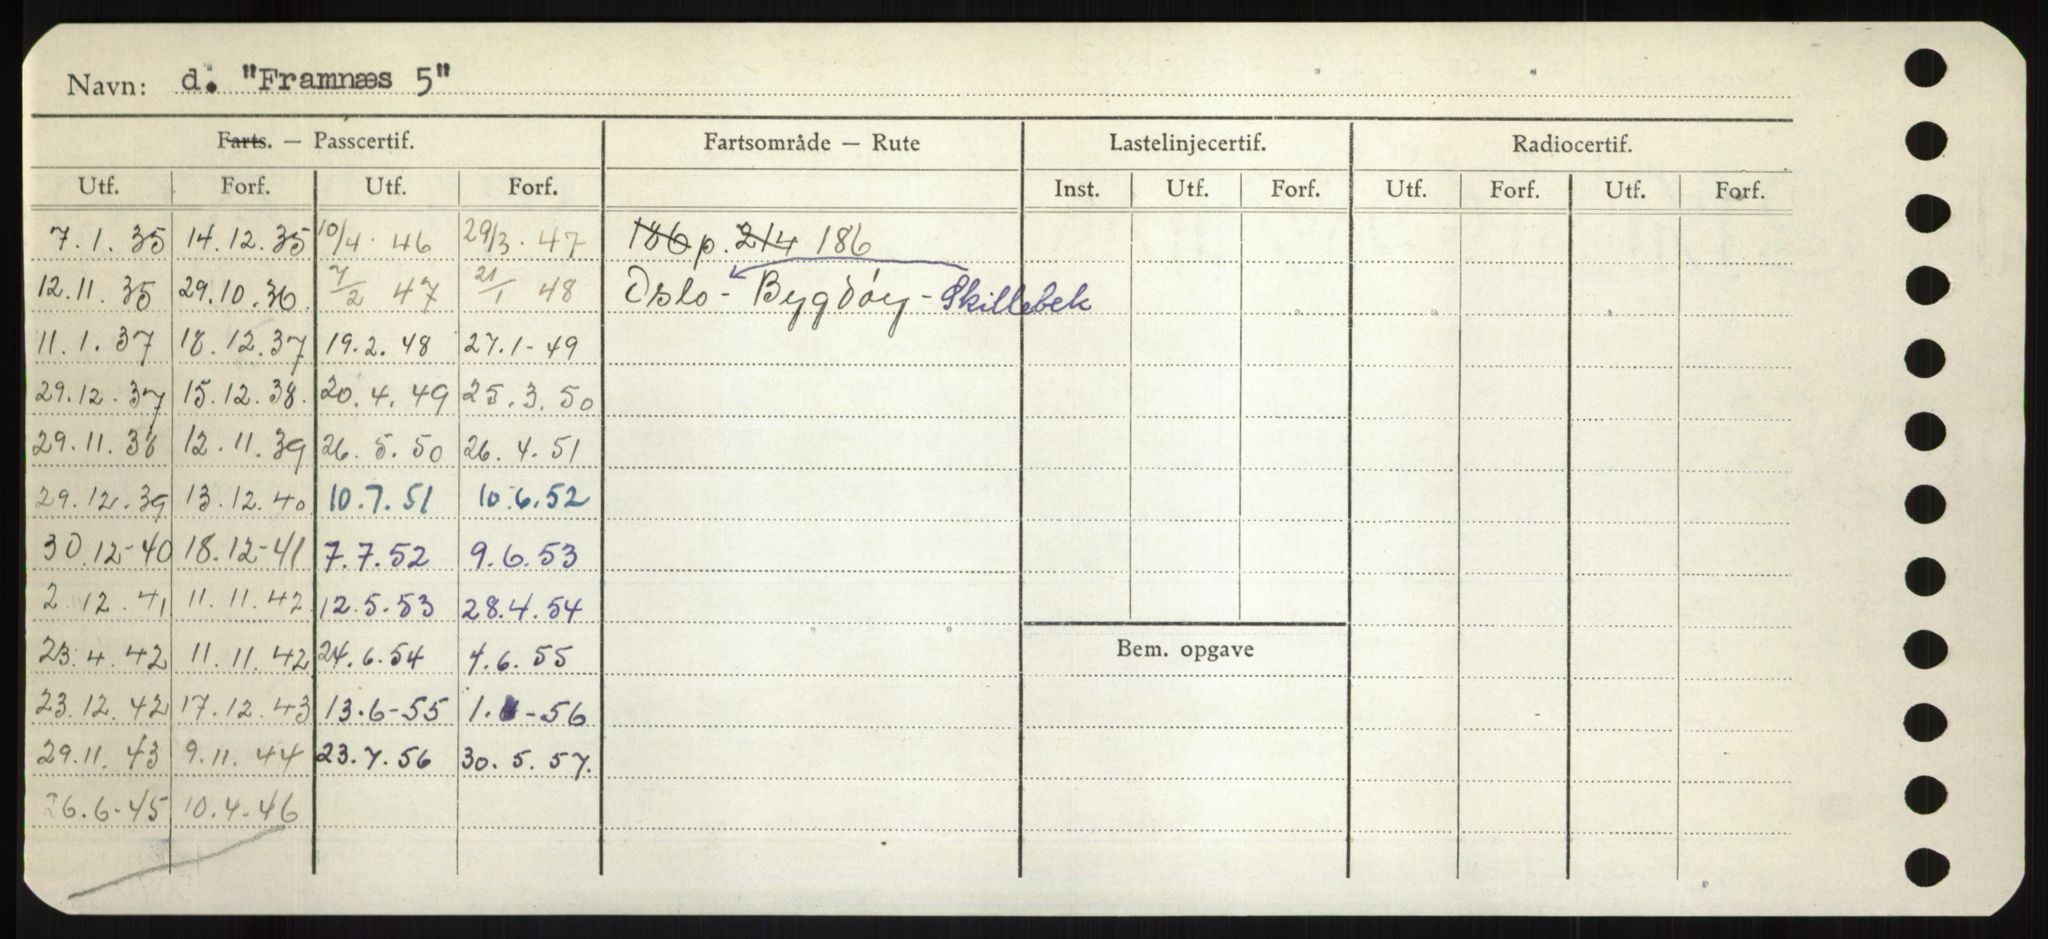 Navn: d. "Framnæs 5"
Farts. — Passcertif. Fartsområde — Rute Lastelinjecertif. Radiocertif.
Utf. Forf. Utf. Forf. Inst. Utf. Forf. Utf. Forf. Utf. Forf.
7.1.35 14.12.35 10/4.46 29/3.47 186 p. 214 186
12.11.35 29.10.36. 7/2 47 21/1 48 Oslo - Bygdöy - Skillebek
11.1.37 18.12.37 19.2.48 27.1-49
29.12.37 15.12.38. 20.4.49 25.3.50
29.11.38 12.11.39 26.5.50 26.4.51
29.12.39 13.12.40 10.7.51 10.6.52
30.12-40 18.12-41 7.7.52 9.6.53
2.12.41 11.11.42 12.5.53 28.4.54
23.4.42 11.11.42 24.6.54 4.6.55
23.12.42 17.12.43 13.6-55 1. -56
29.11.43 9.11.44 23.7.56 30.5.57.
26.6-45 10.4-46
Bem. opgave